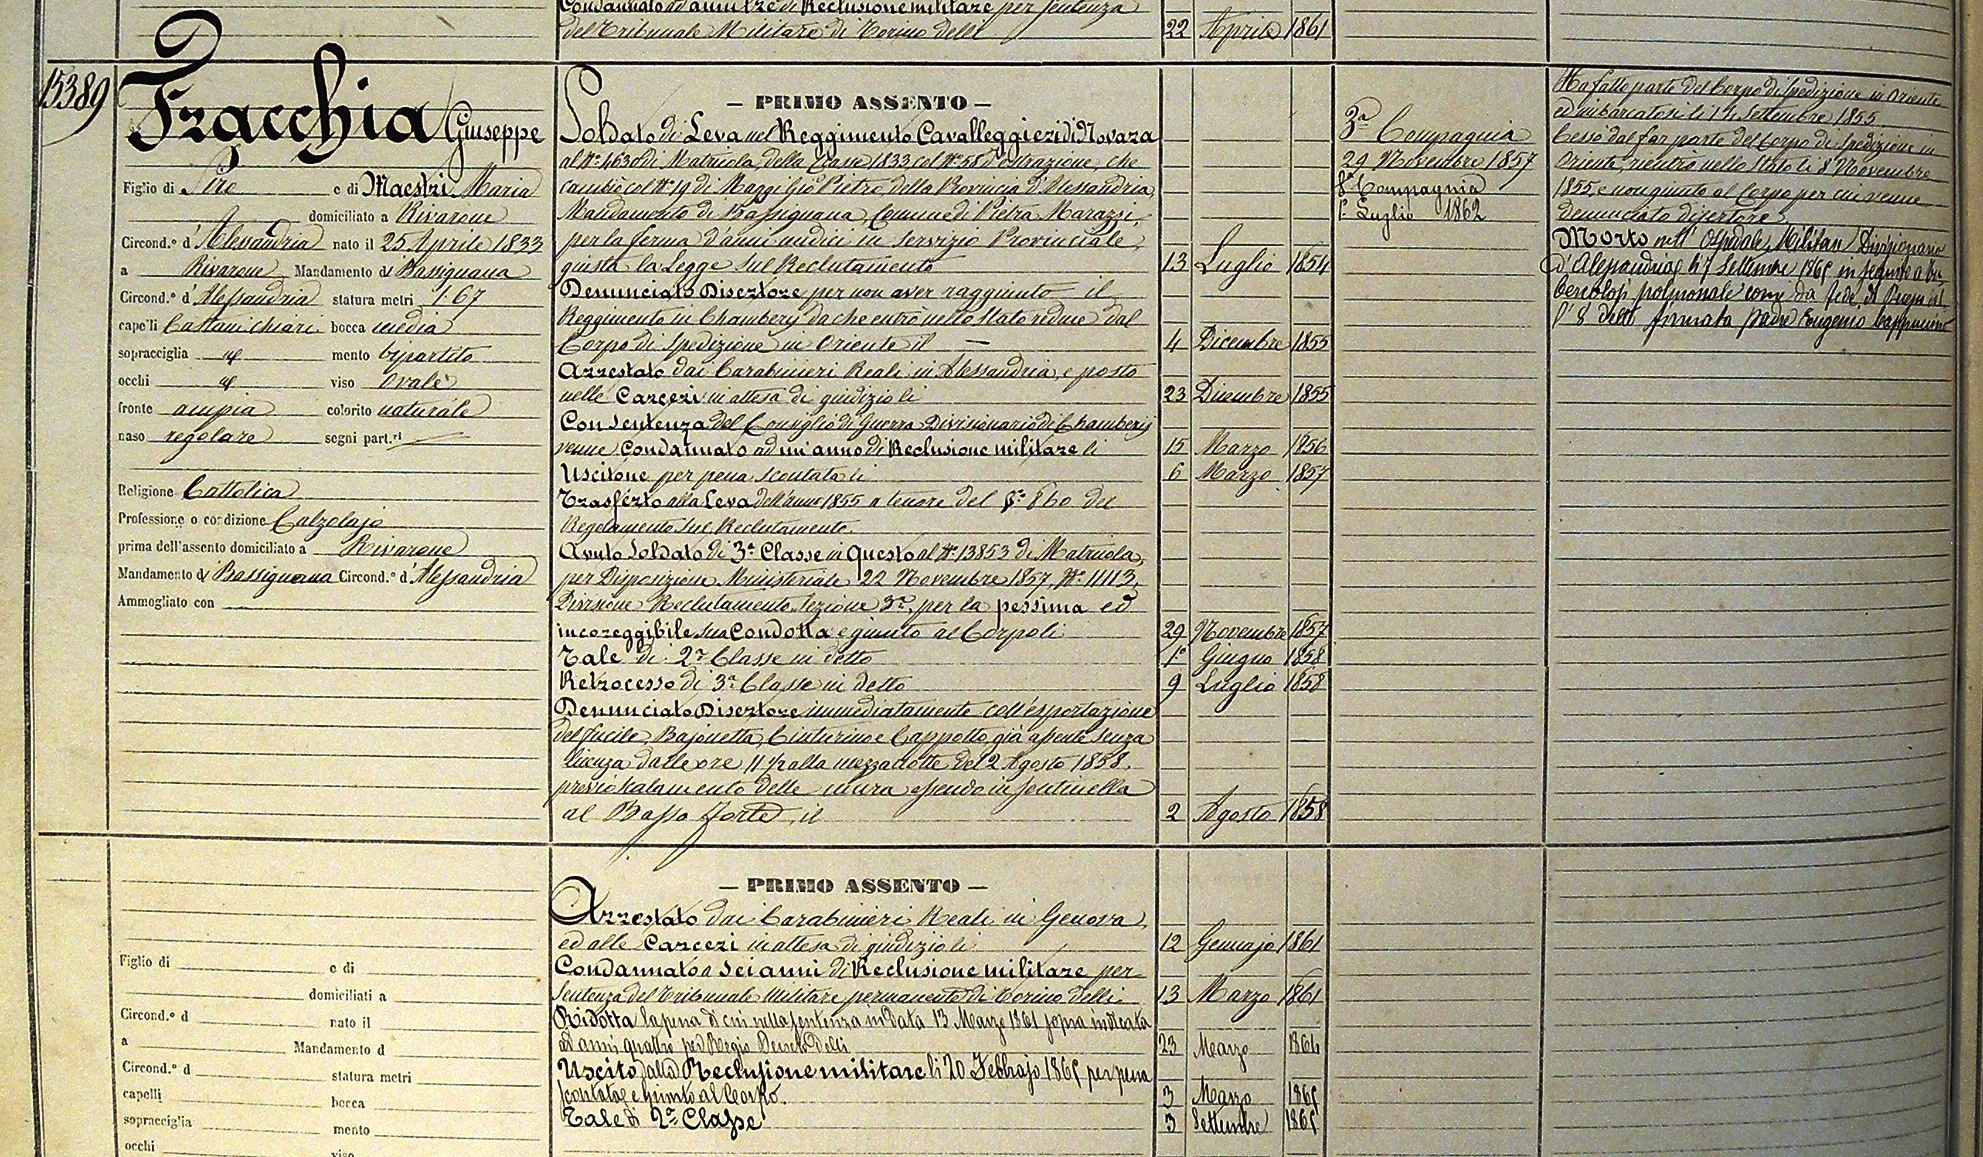 Condannato ad anni tre di Reclusione militare per sentenza
del Tribunale Militare di Torino delli 22 Aprile 1861
15389
Fracchia Giuseppe
Figlio di Siro e di Maestri Maria
domiciliato a Rivarone
Circond.º d'Alessandria nato il 25 Aprile 1833
a Rivarone Mandamento di Bassignana
Circond.º d'Alessandria statura metri 1.67
cape'li Castani chiari bocca media
sopracciglia id mento bipartito
occhi id viso Ovale
fronte ampia colorito naturale
naso regolare segni part.ri
Religione Cattolica
Professione o condizione Calzolajo
prima dell'assento domiciliato a Rivarone
Mandamento di Bassignana Circond.º d'Alessandria
Ammogliato con
— PRIMO ASSENTO —
Soldato di Leva nel Reggimento Cavalleggieri di Novara
al Nº 4630 di Matricola, della Classe 1833 col Nº 58 d'estrazione, che
cambiò col Nº 19 di Maggi Gio Pietro della Provincia d'Alessandria,
Mandamento di Bassignana, Comune di Pietra Marazzi,
per la ferma d'anni undici in servizio Provinciale,
giusta la Legge sul Reclutamento 13 Luglio 1854
Denunciato Disertore per non aver raggiunto il
Reggimento in Chambery da che entrò nello Stato reduce dal
Corpo di Spedizione in Oriente il — 4 Dicembre 1855
Arrestato dai Carabinieri Reali in Alessandria, e posto
nelle Carceri in attesa di giudizio li 23 Dicembre 1855
Con sentenza del Consiglio di Guerra Divisionario di Chambery
venne Condannato ad un anno di Reclusione militare li 15 Marzo 1856
Uscitone per pena scontata li 6 Marzo 1857
Trasferto alla Leva dell'anno 1855 a tenore del §º 860 del
Regolamento sul Reclutamento.
Avuto Soldato di 3ª Classe in Questo al Nº 13853 di Matricola,
per Disposizione Ministeriale 22 Novembre 1857, Nº 11113,
Divisione Reclutamento, Sezione 3ª, per la pessima ed
incoreggibile sua Condotta e giunto al Corpo li 29 Novembre 1857
Tale di 2ª Classe in detto 1º Giugno 1858
Retrocesso di 3ª Classe in detto 9 Luglio 1858
Denunciato Disertore immediatamente coll'esportazione
del fucile Bajonetta, Cinturino e Cappotto, già assente senza
licenza dalle ore 11 ½ alla mezzanotte del 2 Agosto 1858.
previo scalamento delle mura essendo in sentinella
al Basso forte, il 2 Agosto 1858
3ª Compagnia
29 Novembre 1857
8ª Compagnia
1º Luglio 1862
Ha fatto parte del Corpo di Spedizione in Oriente
ed imbarcatosi li 14 Settembre 1855
Cessò dal far parte del Corpo di Spedizione in
Oriente, rientrò nello Stato li 8 Novembre
1855, e non giunto al Corpo per cui venne
denunciato disertore.
Morto nell'Ospedale Militare Divisionario
d'Alessandria li 7 Settembre 1865 in seguito a tu-
bercolosi polmonale come da fede di
l'8 detto firmata Padre Eugenio Cappuccino
— PRIMO ASSENTO —
Arrestato dai Carabinieri Reali in Genova,
ed alle Carceri in attesa di giudizio li 12 Gennajo 1861
Condannato a sei anni di Reclusione militare per
Sentenza del Tribunale Militare permanente di Torino delli 13 Marzo 1861
Ridotta la pena di cui nella sentenza in data 13 Marzo 1861 sopra indicata
ad anni quattro per Regio Decreto delli 23 Marzo 1864
Uscito dalla Reclusione militare li 20 Febbrajo 1865 per pena
scontata e giunto al Corpo. 3 Marzo 1865
Tale di 2ª Classe 3 Settembre 1865
Figlio di e di
domiciliati a
Circond.º d nato il
a Mandamento d
Circond.º d statura metri
capelli bocca
sopracciglia mento
occhi viso